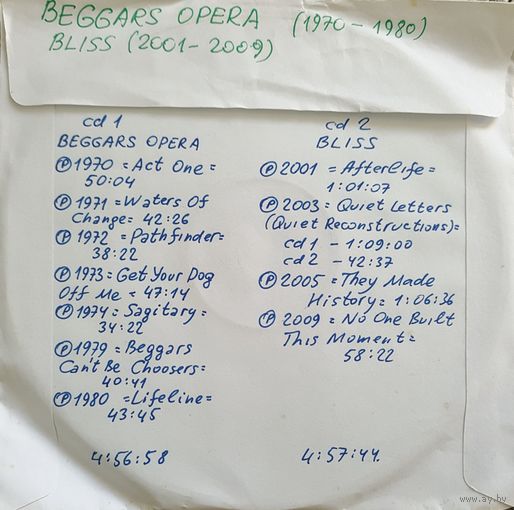 BEGGARS OPERA (1970-1980)
BLISS (2001-2009)
cd 1
BEGGARS OPERA
Ⓟ1970 = Act One =
50:04
Ⓟ1971 = Waters Of
Change= 42:26
Ⓟ1972 = Pathfinder=
38:22
Ⓟ1973= Get Your Dog
Off Me = 47:14
Ⓟ1974= Sagitary=
34:22
Ⓟ1979 = Beggars
Can't Be Choosers=
40:41
Ⓟ1980 =Lifeline=
43:45
4:56:58
cd 2
BLISS
Ⓟ2001 = Afterlife =
1:01:07
Ⓟ2003= Quiet Letters
(Quiet Reconstructions)=
cd1 - 1:09:00
cd2 - 42:37
Ⓟ2005 = They Made
History= 1:06:36
Ⓟ2009 = No One Built
This Moment=
58:22
4:57:44.
www.ay.by